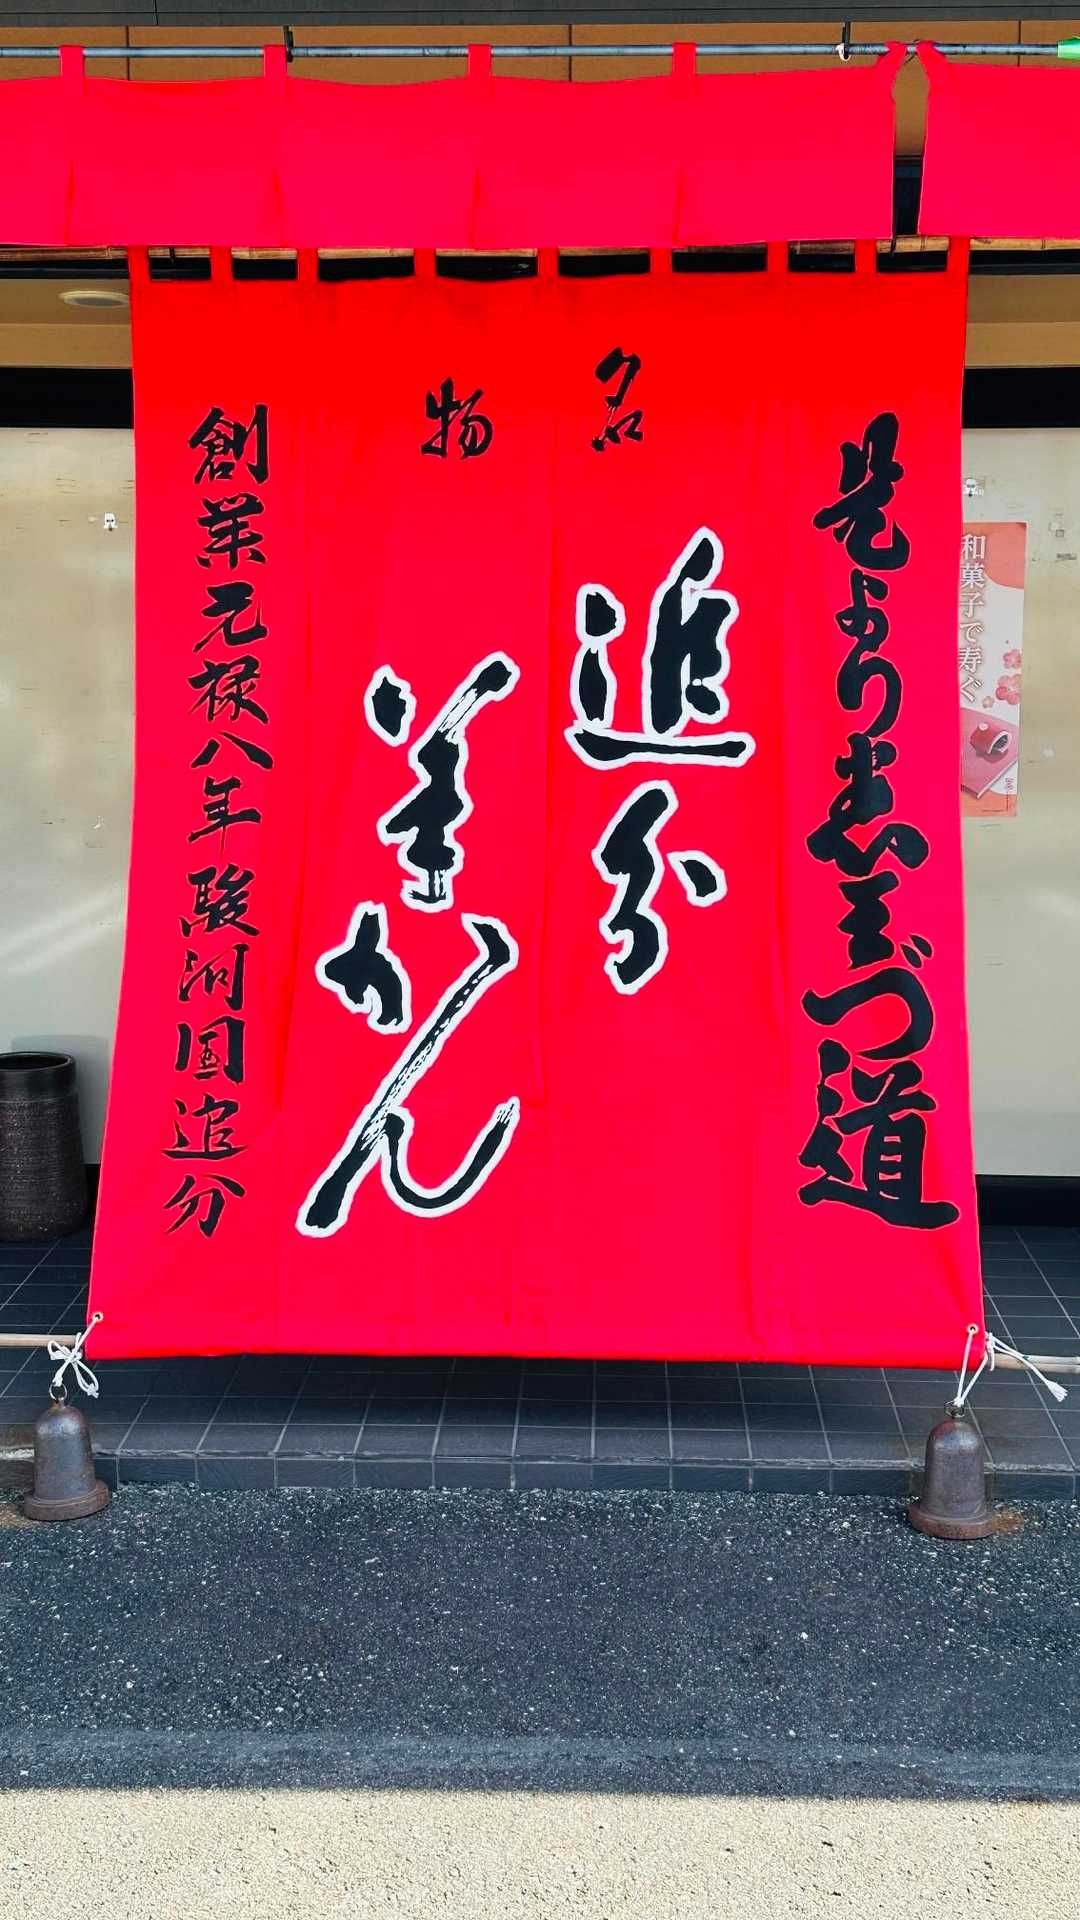 是より志三づ道
名物
追分
羊かん
創業元禄八年駿河国追分
和菓子で寿ぐ